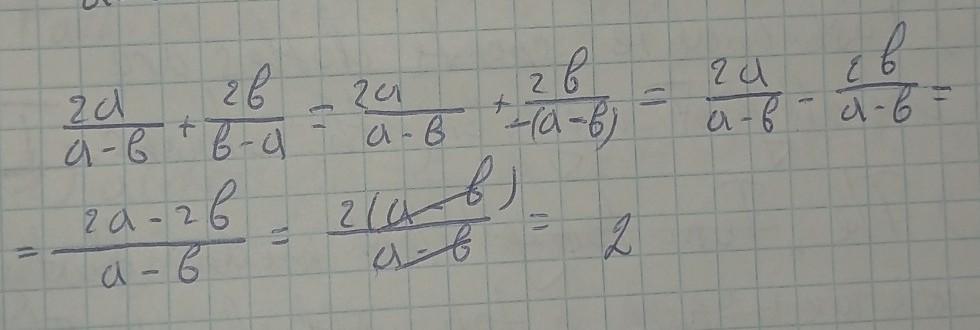 2a/(a-b) + 2b/(b-a) = 2a/(a-b) + 2b/(-(a-b)) = 2a/(a-b) - 2b/(a-b) =
= (2a-2b)/(a-b) = 2(a-b)/(a-b) = 2